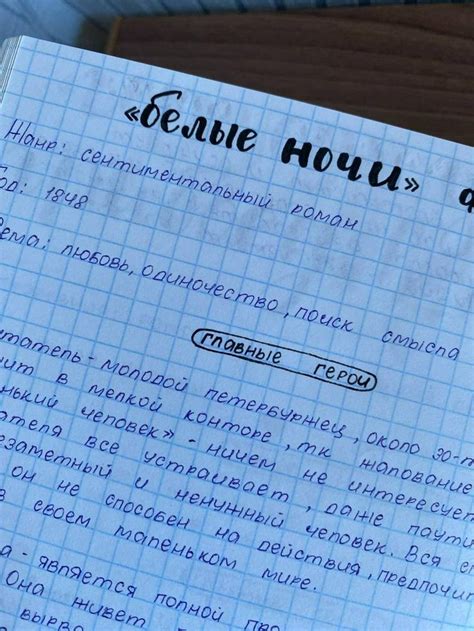 «белые ночи» ф
Жанр: сентиментальный роман
год: 1848
ема: любовь, одиночество, поиск смысла
главные герои
татель - молодой петербуржец, около 30-т
ит в мелкой конторе, тк жалование
нький человек» - ничем не интересуе
ателя все устраивает, даже паути
езаметный и ненужный человек. Вся е
он не способен на действия, предпочи
в своем маленьком мире.
а - является полной про
Она живет
вырва